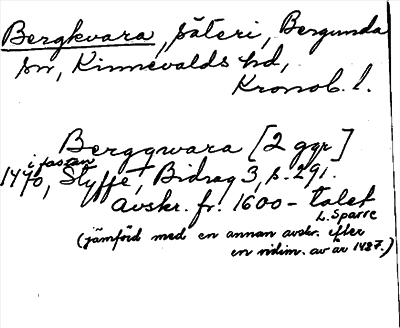 Bergkvara, säteri, Bergunda
sn, Kinnevalds hd,
Kronob. l.
Bergqwara [2 ggr]
i fastan
1470, Styffe, Bidrag 3, s. 291.
avskr. fr. 1600-talet
L. Sparre
(jämförd med en annan avskr. efter
en vidim. av år 1487.)